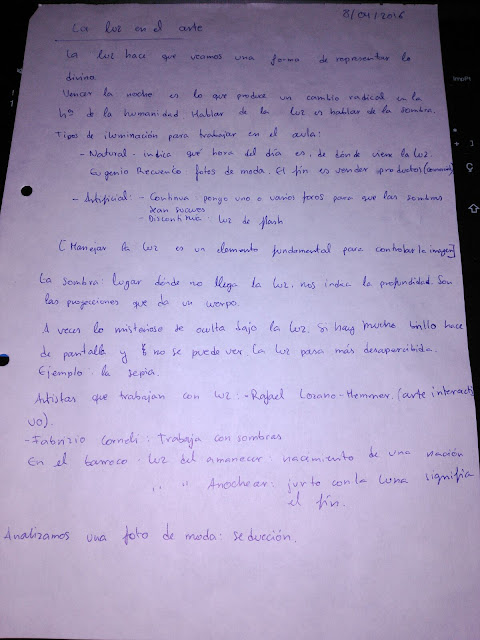 8/04/2016
La luz en el arte
La luz hace que veamos una forma de representar lo
divino.
Vencer la noche es lo que produce un cambio radical en la
hª de la humanidad. Hablar de la luz es hablar de la sombra.
Tipos de iluminación para trabajar en el aula:
- Natural - indica qué hora del día es, de dónde viene la luz.
Eugenio Recuenco fotos de moda. El fin es vender productos
- Artificial: - Continua: pongo uno o varios focos para que las sombras
sean suaves
- Discontinua: luz de flash
[Manejar la luz es un elemento fundamental para controlar la imagen]
La sombra: lugar dónde no llega la luz, nos indica la profundidad. Son
las proyecciones que da un cuerpo.
A veces lo misterioso se oculta bajo la luz. Si hay mucho brillo hace
de pantalla y no se puede ver. La luz pasa más desapercibida.
Ejemplo: la sepia.
Artistas que trabajan con luz: - Rafael Lozano-Hemmer. (arte interacti
vo).
- Fabrizio Corneli: Trabaja con sombras
En el barroco: luz del amanecer: nacimiento de una nación
" " Anochecer: junto con la luna significa
el fin.
Analizamos una foto de moda: seducción.